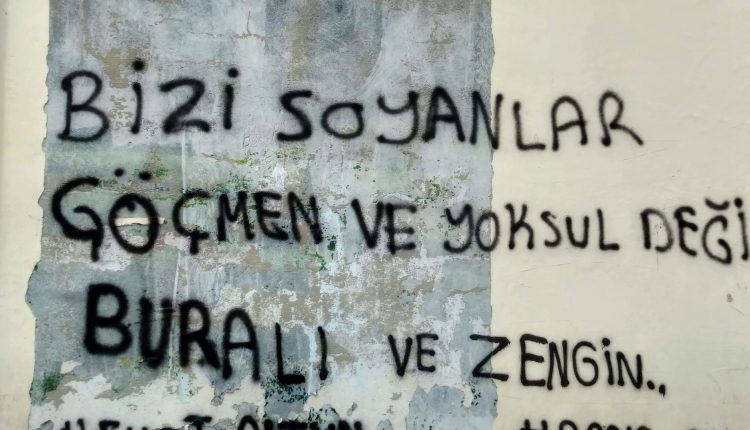 BİZİ SOYANLAR
GÖÇMEN VE YOKSUL DEĞİ
BURALI VE ZENGİN..